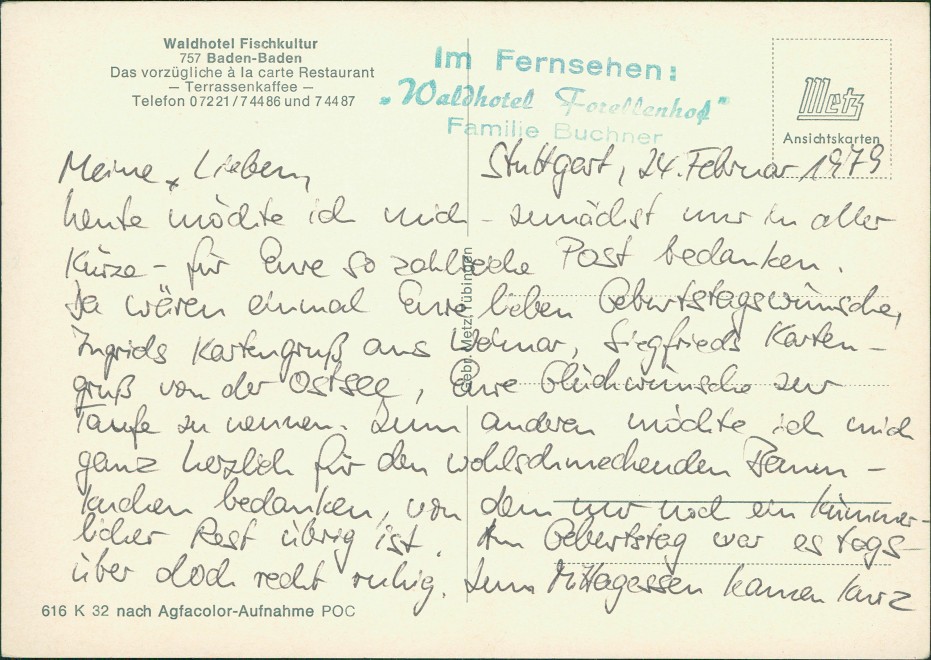 Waldhotel Fischkultur
757 Baden-Baden
Das vorzügliche à la carte Restaurant
— Terrassenkaffee —
Telefon 07221/74486 und 74487
Im Fernsehen:
„Waldhotel Forellenhof"
Familie Buchner
Metz
Ansichtskarten
Stuttgart, 24. Februar 1979
Meine Lieben,
heute möchte ich mich – zunächst nur in aller
Kürze – für Eure so zahlreiche Post bedanken.
Da wären einmal Eure lieben Geburtstagswünsche,
Ingrids Kartengruß aus Weimar, Siegfrieds Karten-
gruß von der Ostsee, Eure Glückwünsche zur
Taufe zu nennen. Zum anderen möchte ich mich
ganz herzlich für den wohlschmeckenden Baum-
kuchen bedanken, von dem nur noch ein kümmer-
licher Rest übrig ist. Am Geburtstag war es tags-
über doch recht ruhig. Zum Mittagessen kamen kurz
Gebr. Metz, Tübingen
616 K 32 nach Agfacolor-Aufnahme POC